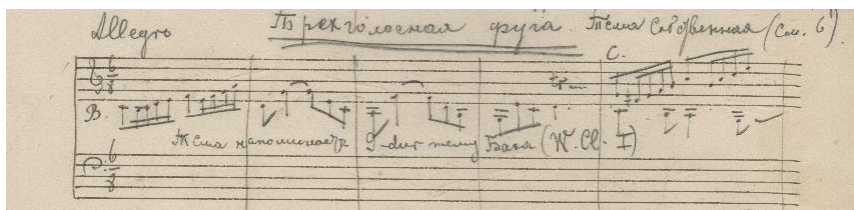 Allegro Трехголосная фуга. Тема собственная (См. 6)
C.
6 8
B.
Тема напоминает G-dur тему Баха (W. Cl. I)
6 8